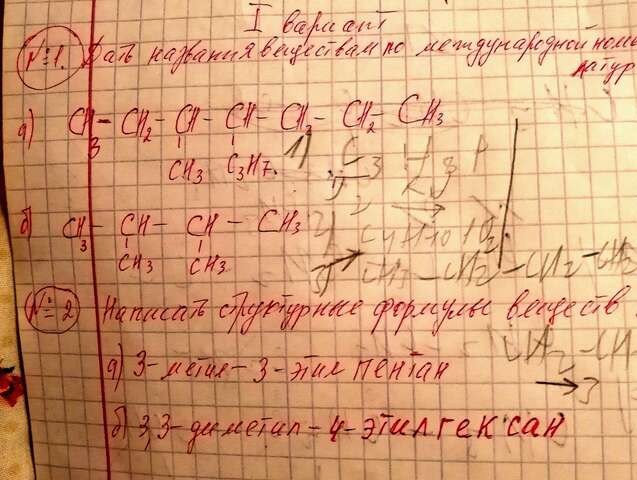 I вариант
№1. Дать названия веществам по международной номе
латур
а) CH3 - CH2 - CH - CH - CH2 - CH2 - CH3
CH3 C3H7.
б) CH3 - CH - CH - CH3
CH3 CH3
№2 Написать структурные формулы веществ
а) 3-метил-3-этилпентан
б) 3,3-диметил-4-этилгексан